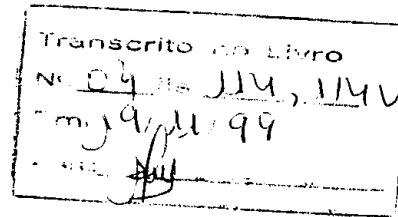 Transcrito no Livro
Nº 04 fls 114, 114V
Em, 19/11/99